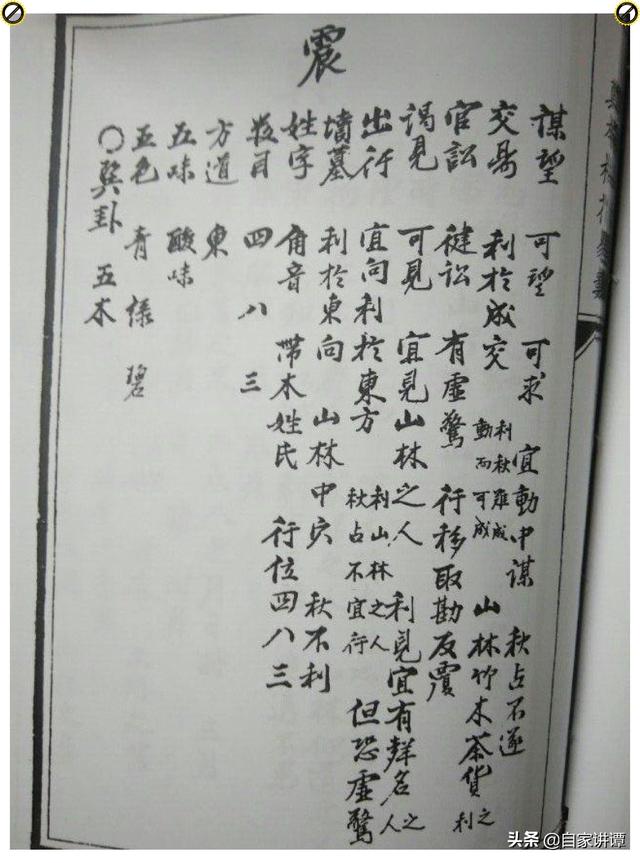 震
謀望 可望 可求 宜動中謀 秋占不遂
交易 利於成交 利秋難成 動而可成 山林竹木茶貨之利
官訟 健訟 有虛驚 行移取勘反覆
謁見 可見 宜見山林之人 利見宜有聲名之人
出行 宜向利於東方 利山林之人 秋占不宜行 但恐虛驚
墳墓 利於東向 山林中穴 秋不利
姓字 角音 帶木姓氏 行位四八三
數目 四 八 三
方道 東
五味 酸味
五色 青 綠 碧
○巽卦 五木
头条 @自家讲谭